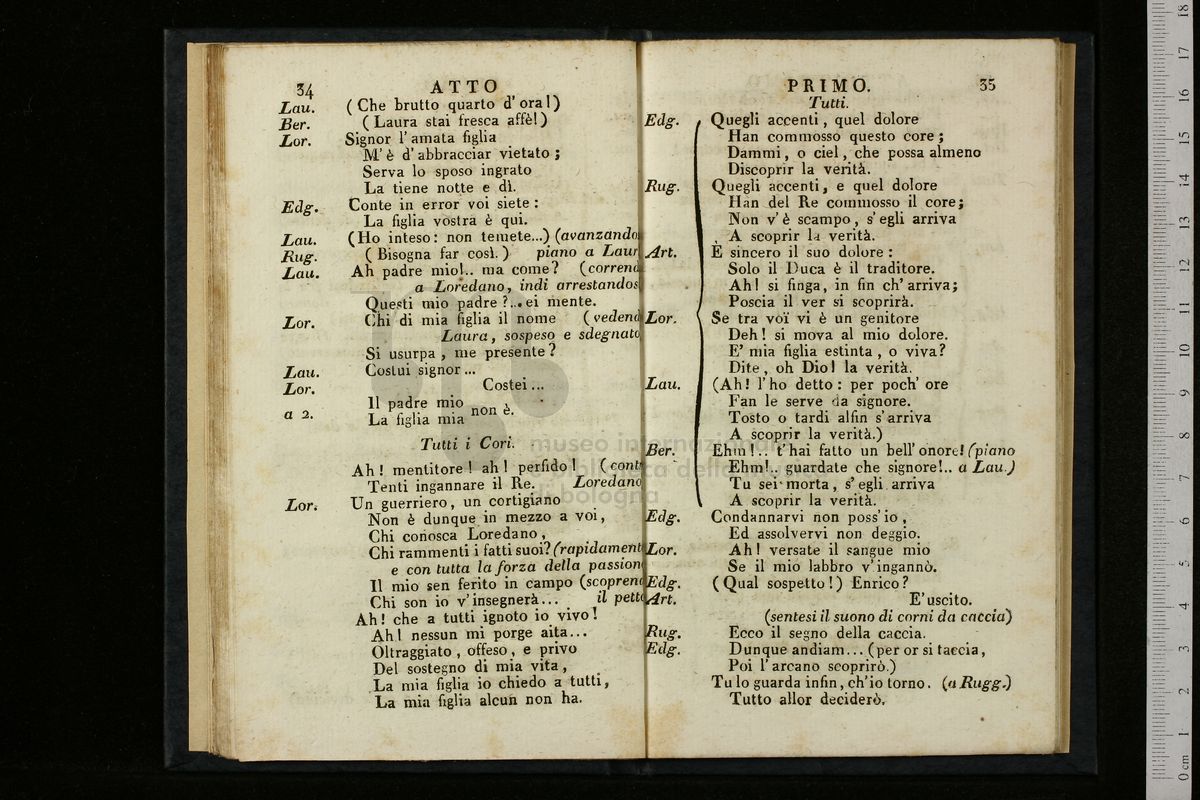 34 ATTO
Lau. (Che brutto quarto d'ora!)
Ber. (Laura stai fresca affè!)
Lor. Signor l'amata figlia
M'è d'abbracciar vietato;
Serva lo sposo ingrato
La tiene notte e dì.
Edg. Conte in error voi siete:
La figlia vostra è qui.
Lau. (Ho inteso: non temete...) (avanzando
Rug. (Bisogna far così.) piano a Laur
Lau. Ah padre mio!.. ma come? (corren
a Loredano, indi arrestandos
Questi mio padre?... ei mente.
Lor. Chi di mia figlia il nome (vedend
Laura, sospeso e sdegnato
Si usurpa, me presente?
Lau. Costui signor...
Lor. Costei...
a 2. Il padre mio
La figlia mia non è.
Tutti i Cori.
Ah! mentitore! ah! perfido! (cont
Tenti ingannare il Re. Loredano
Lor. Un guerriero, un cortigiano
Non è dunque in mezzo a voi,
Chi conosca Loredano,
Chi rammenti i fatti suoi? (rapidament
e con tutta la forza della passion
Il mio sen ferito in campo (scopren
Chi son io v'insegnerà... il pett
Ah! che a tutti ignoto io vivo!
Ah! nessun mi porge aita...
Oltraggiato, offeso, e privo
Del sostegno di mia vita,
La mia figlia io chiedo a tutti,
La mia figlia alcun non ha.
PRIMO. 35
Tutti.
Edg. Quegli accenti, quel dolore
Han commosso questo core;
Dammi, o ciel, che possa almeno
Discoprir la verità.
Rug. Quegli accenti, e quel dolore
Han del Re commosso il core;
Non v'è scampo, s'egli arriva
A scoprir la verità.
Art. È sincero il suo dolore:
Solo il Duca è il traditore.
Ah! si finga, in fin ch'arriva;
Poscia il ver si scoprirà.
Lor. Se tra voï vi è un genitore
Deh! si mova al mio dolore.
E' mia figlia estinta, o viva?
Dite, oh Dio! la verità.
Lau. (Ah! l'ho detto: per poch' ore
Fan le serve da signore.
Tosto o tardi alfin s'arriva
A scoprir la verità.)
Ber. Ehm!.. t'hai fatto un bell'onore! (piano
Ehm!.. guardate che signore!.. a Lau.)
Tu sei morta, s'egli arriva
A scoprir la verità.
Edg. Condannarvi non poss'io,
Ed assolvervi non deggio.
Lor. Ah! versate il sangue mio
Se il mio labbro v'ingannò.
Edg. (Qual sospetto!) Enrico?
Art. E' uscito.
(sentesi il suono di corni da caccia)
Rug. Ecco il segno della caccia.
Edg. Dunque andiam... (per or si taccia,
Poi l'arcano scoprirò.)
Tu lo guarda infin, ch'io torno. (a Rugg.)
Tutto allor deciderò.